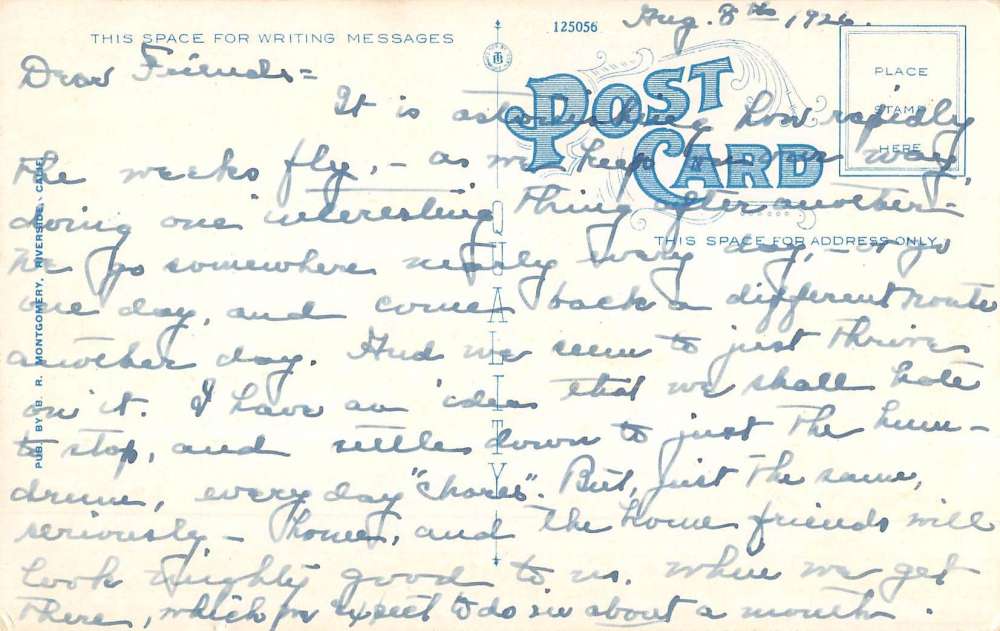 Aug. 8th 1926.
THIS SPACE FOR WRITING MESSAGES
125056
POST CARD
PLACE
STAMP
HERE
THIS SPACE FOR ADDRESS ONLY
PUB. BY B. R. MONTGOMERY, RIVERSIDE, CALIF.
QUALITY
Dear Friends =
It is astonishing how rapidly
the weeks fly, - as we keep on our way,
doing one "interesting" thing after another -
We go somewhere nearly every day, - or go
one day, and come back a different route
another day. And we seem to just thrive
on it. I have an idea that we shall hate
to stop, and settle down to just the hum-
drum, every day "chores". But, just the same,
seriously - home, and the home friends will
look mighty good to us. when we get
there, which we expect to do in about a month.